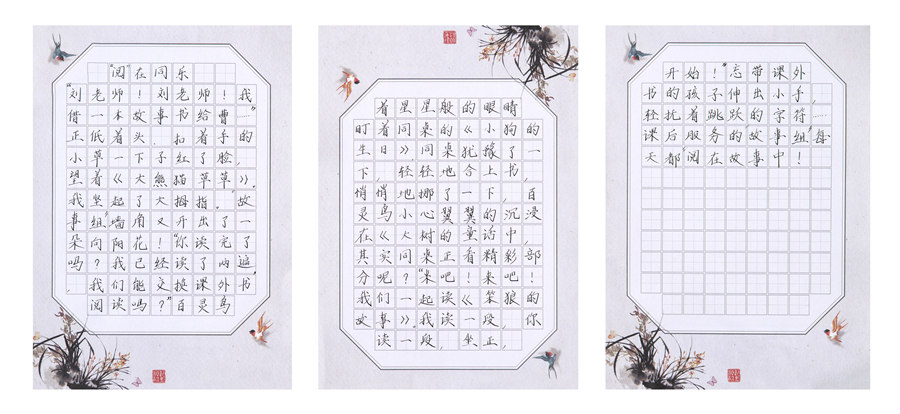 “阅”在同乐
“刘老师！刘老师！我
借一本故事书给曹……”
正低着头、扣着手的
小草一下子红了脸，
望着《大熊猫草草》。
我竖起了大拇指。“故
事组”墙角又开出了一
朵向阳花！“你读完了
吗？我已经读了两遍，
我们能交换课外书
阅读吗？”百灵鸟
着星星般的眼睛
盯着同桌的《小狗的
生日》。同桌犹豫了一
下，轻轻地合上书，
悄悄地挪了一下，百
灵鸟小心翼翼的沉浸
在《大树的童话中，
其实同桌正看精彩部
分呢？“来吧！来吧！
我们一起读《笨狼的
故事》。我读一段，你
读一段，坐正，
开始！”忘带课外
书的孩子伸出小手，
轻托着跳跃的字符……
课后服务的故事组，每
天都“阅在故事中！